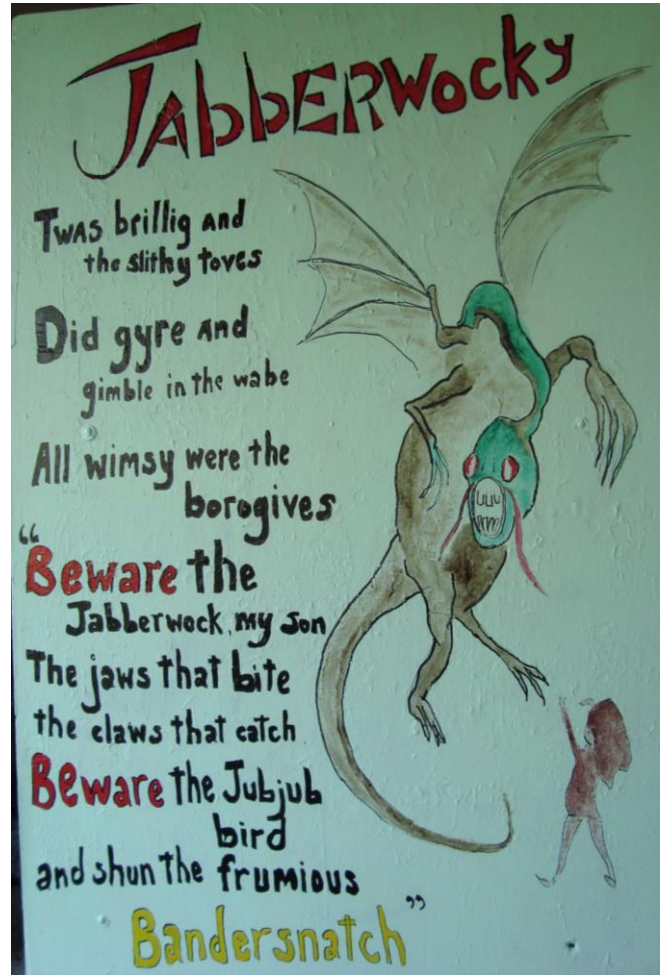 JAbbERWocky
Twas brillig and
the slithy toves
Did gyre and
gimble in the wabe
All wimsy were the
borogives
“Beware the
Jabberwock, my son
The jaws that bite
the claws that catch
Beware the Jubjub
bird
and shun the frumious
Bandersnatch”